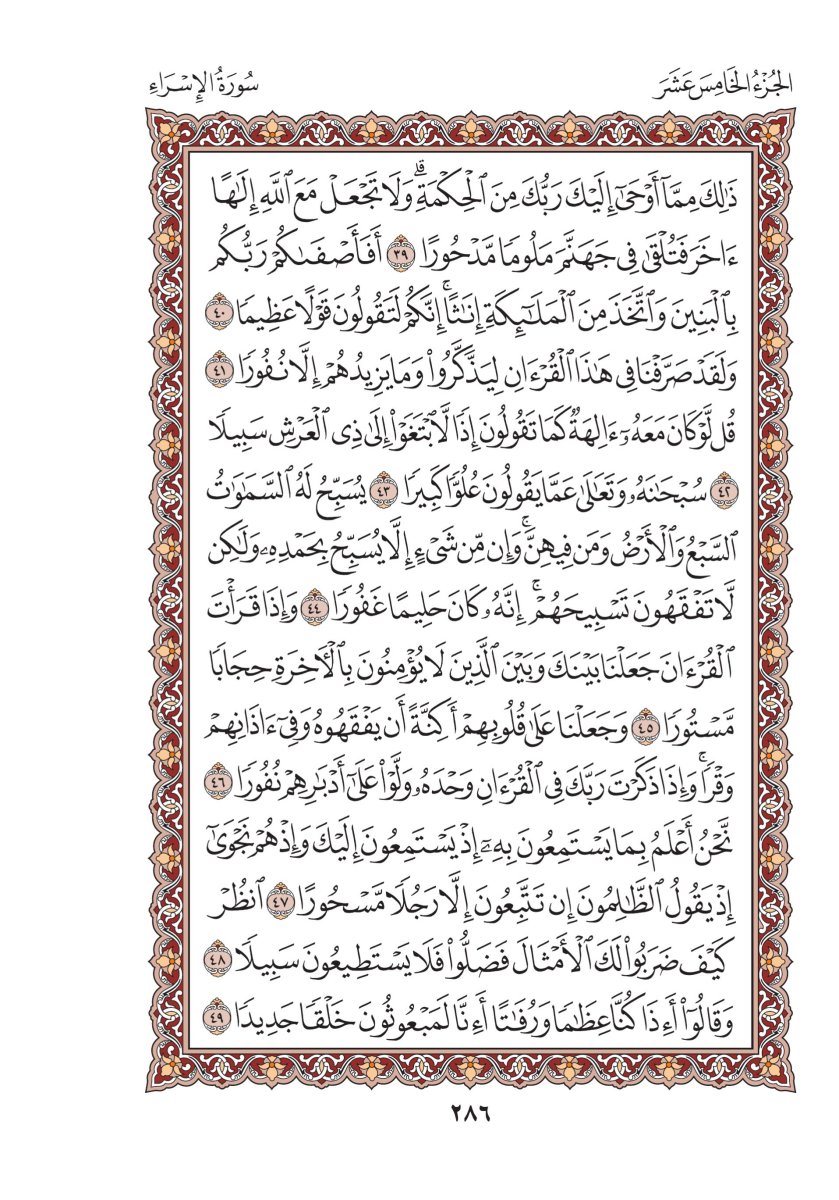 الجُزْءُ الخَامِسَ عَشَرَ
سُورَةُ الإِسْرَاءِ
ذَٰلِكَ مِمَّآ أَوْحَىٰٓ إِلَيْكَ رَبُّكَ مِنَ ٱلْحِكْمَةِۗ وَلَا تَجْعَلْ مَعَ ٱللَّهِ إِلَٰهًا
ءَاخَرَ فَتُلْقَىٰ فِى جَهَنَّمَ مَلُومًا مَّدْحُورًا ٣٩ أَفَأَصْفَىٰكُمْ رَبُّكُم
بِٱلْبَنِينَ وَٱتَّخَذَ مِنَ ٱلْمَلَٰٓئِكَةِ إِنَٰثًاۚ إِنَّكُمْ لَتَقُولُونَ قَوْلًا عَظِيمًا ٤٠
وَلَقَدْ صَرَّفْنَا فِى هَٰذَا ٱلْقُرْءَانِ لِيَذَّكَّرُوا۟ وَمَا يَزِيدُهُمْ إِلَّا نُفُورًا ٤١
قُل لَّوْ كَانَ مَعَهُۥٓ ءَالِهَةٌ كَمَا تَقُولُونَ إِذًا لَّٱبْتَغَوْا۟ إِلَىٰ ذِى ٱلْعَرْشِ سَبِيلًا
٤٢ سُبْحَٰنَهُۥ وَتَعَٰلَىٰ عَمَّا يَقُولُونَ عُلُوًّا كَبِيرًا ٤٣ يُسَبِّحُ لَهُ ٱلسَّمَٰوَٰتُ
ٱلسَّبْعُ وَٱلْأَرْضُ وَمَن فِيهِنَّۚ وَإِن مِّن شَىْءٍ إِلَّا يُسَبِّحُ بِحَمْدِهِۦ وَلَٰكِن
لَّا تَفْقَهُونَ تَسْبِيحَهُمْۚ إِنَّهُۥ كَانَ حَلِيمًا غَفُورًا ٤٤ وَإِذَا قَرَأْتَ
ٱلْقُرْءَانَ جَعَلْنَا بَيْنَكَ وَبَيْنَ ٱلَّذِينَ لَا يُؤْمِنُونَ بِٱلْءَاخِرَةِ حِجَابًا
مَّسْتُورًا ٤٥ وَجَعَلْنَا عَلَىٰ قُلُوبِهِمْ أَكِنَّةً أَن يَفْقَهُوهُ وَفِىٓ ءَاذَانِهِمْ
وَقْرًاۚ وَإِذَا ذَكَرْتَ رَبَّكَ فِى ٱلْقُرْءَانِ وَحْدَهُۥ وَلَّوْا۟ عَلَىٰٓ أَدْبَٰرِهِمْ نُفُورًا ٤٦
نَّحْنُ أَعْلَمُ بِمَا يَسْتَمِعُونَ بِهِۦٓ إِذْ يَسْتَمِعُونَ إِلَيْكَ وَإِذْ هُمْ نَجْوَىٰٓ
إِذْ يَقُولُ ٱلظَّٰلِمُونَ إِن تَتَّبِعُونَ إِلَّا رَجُلًا مَّسْحُورًا ٤٧ ٱنظُرْ
كَيْفَ ضَرَبُوا۟ لَكَ ٱلْأَمْثَالَ فَضَلُّوا۟ فَلَا يَسْتَطِيعُونَ سَبِيلًا ٤٨
وَقَالُوٓا۟ أَءِذَا كُنَّا عِظَٰمًا وَرُفَٰتًا أَءِنَّا لَمَبْعُوثُونَ خَلْقًا جَدِيدًا ٤٩
٢٨٦